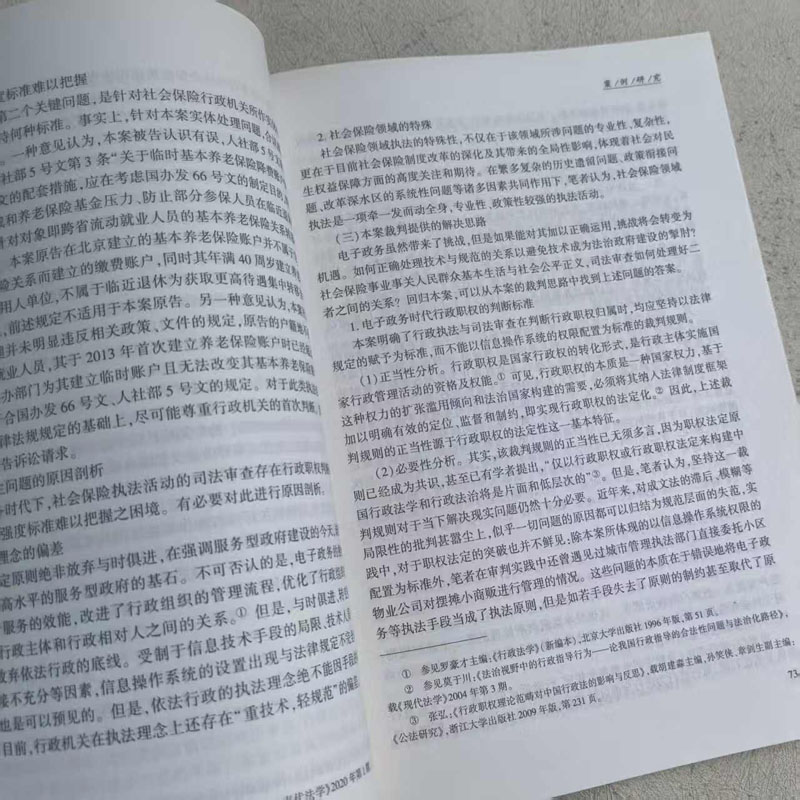 度标准难以把握
第二个关键问题，是针对社会保险行政机关所作
持何种标准。事实上，针对本案实体处理问题，合
。一种意见认为，本案被告认识有误，人社部5号
社部5号文第3条“关于临时基本养老保险缴费账
文的配套措施，应在考虑国办发66号文的制定目
和养老保险基金压力、防止部分参保人员在临近退
针对对象即跨省流动就业人员的基本养老保险关系
本案原告在北京建立的基本养老保险账户并不属于
险关系而建立的缴费账户，同时其年满40周岁建立
用人单位，不属于临近退休为获取更高待遇集中转移
，前述规定不适用于本案原告。另一种意见认为，本
并未明显违反相关政策、文件的规定，原告的户籍
就业人员，其于2013年首次建立养老保险账户时已经
办部门为其建立临时账户且无法改变其基本养老保
合国办发66号文、人社部5号文的规定。对于此类
律法规规定的基础上，尽可能尊重行政机关的首次判断
告诉讼请求。
生问题的原因剖析
时代下，社会保险执法活动的司法审查存在行政职权
强度标准难以把握之困境。有必要对此进行原因剖析
理念的偏差
定原则绝非放弃与时俱进，在强调服务型政府建设的今天
高水平的服务型政府的基石。不可否认的是，电子政务
服务的效能，改进了行政组织的管理流程，优化了行政组
行政主体和行政相对人之间的关系。① 但是，与时俱进
放弃依法行政的底线。受制于信息技术手段的局限、技术人
接不充分等因素，信息操作系统的设置出现与法律规定不完
也是可以预见的。但是，依法行政的执法理念绝不能因手段
目前，行政机关在执法理念上还存在“重技术，轻规范”的偏
法学》2020年第1
案/例/研/究
2. 社会保险领域的特殊
社会保险领域执法的特殊性，不仅在于该领域所涉问题的专业性，复杂性，
更在于目前社会保险制度改革的深化及其带来的全局性影响，体现着社会对民
生权益保障方面的高度关注和期待。在繁多复杂的历史遗留问题、政策衔接问
题、改革深水区的系统性问题等诸多因素共同作用下，笔者认为，社会保险领域
执法是一项牵一发而动全身，专业性、政策性较强的执法活动。
(三)本案裁判提供的解决思路
电子政务虽然带来了挑战，但是如果能对其加以正确运用，挑战将会转变为
机遇。如何正确处理技术与规范的关系以避免技术成为法治政府建设的掣肘？
社会保险事业事关人民群众基本生活与社会公平正义，司法审查如何处理好二
者之间的关系？回归本案，可以从本案的裁判思路中找到上述问题的答案。
1. 电子政务时代行政职权的判断标准
本案明确了行政执法与司法审查在判断行政职权归属时，均应坚持以法律
规定的赋予为标准，而不能以信息操作系统的权限配置为标准的裁判规则。
(1)正当性分析。行政职权是国家行政权的转化形式，是行政主体实施国
家行政管理活动的资格及权能。① 可见，行政职权的本质是一种国家权力，基于
这种权力的扩张滥用倾向和法治国家构建的需要，必须将其纳入法律制度框架
加以明确有效的定位，监督和制约，即实现行政职权的法定化。② 因此，上述裁
判规则的正当性源于行政职权的法定性这一基本特征。
(2)必要性分析。其实，该裁判规则的正当性已无须多言，因为职权法定原
则已经成为共识，甚至已有学者提出，“仅以行政职权或行政职权法定来构建中
国行政法学和行政法治将是片面和低层次的”③。但是，笔者认为，坚持这一裁
判规则对于当下解决现实问题仍然十分必要。近年来，对成文法的滞后、模糊等
局限性的批判甚嚣尘上，似乎一切问题的原因都可以归结为规范层面的失范，实
践中，对于职权法定的突破也并不鲜见：除本案所体现的以信息操作系统权限的
配置为标准外，笔者在审判实践中还曾遇见过城市管理执法部门直接委托小区
物业公司对摆摊小商贩进行管理的情况。这些问题的本质在于错误地将电子政
务等执法手段当成了执法原则，但是如若手段失去了原则的制约甚至取代了原
① 参见罗豪才主编：《行政法学》(新编本)，北京大学出版社1996年版，第51页。
② 参见莫于川：《法治视野中的行政指导行为——论我国行政指导的合法性问题与法治化路径》，
载《现代法学》2004年第3期。
③ 张弘：《行政职权理论范畴对中国行政法的影响与反思》，载胡建淼主编，孙笑侠、章剑生副主编：
《公法研究》，浙江大学出版社2009年版，第231页。
73